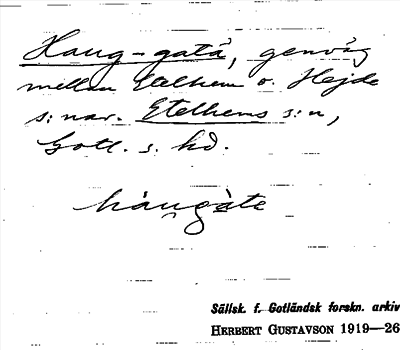 Haug-gatå, genväg
mellan Etelhem o. Hejde
s:nar. Etelhems s:n,
Gotl. s. hd.
håu̯ngàte
Sällsk. f. Gotländsk forskn. arkiv
HERBERT GUSTAVSON 1919—26